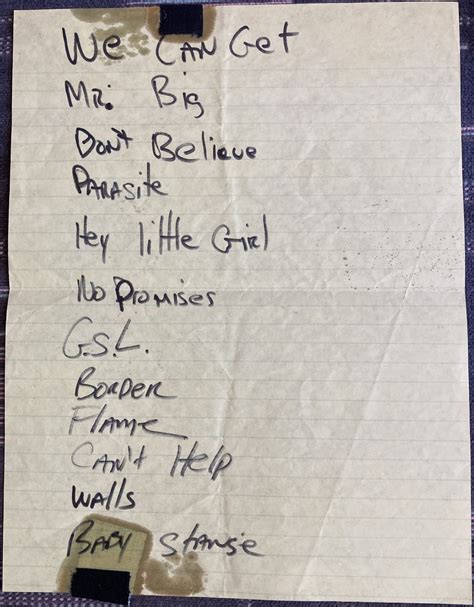 We Can Get
Mr. Big
Don't Believe
Parasite
Hey little Girl
No Promises
G.S.L.
Border
Flame
Can't Help
Walls
Baby Stansie